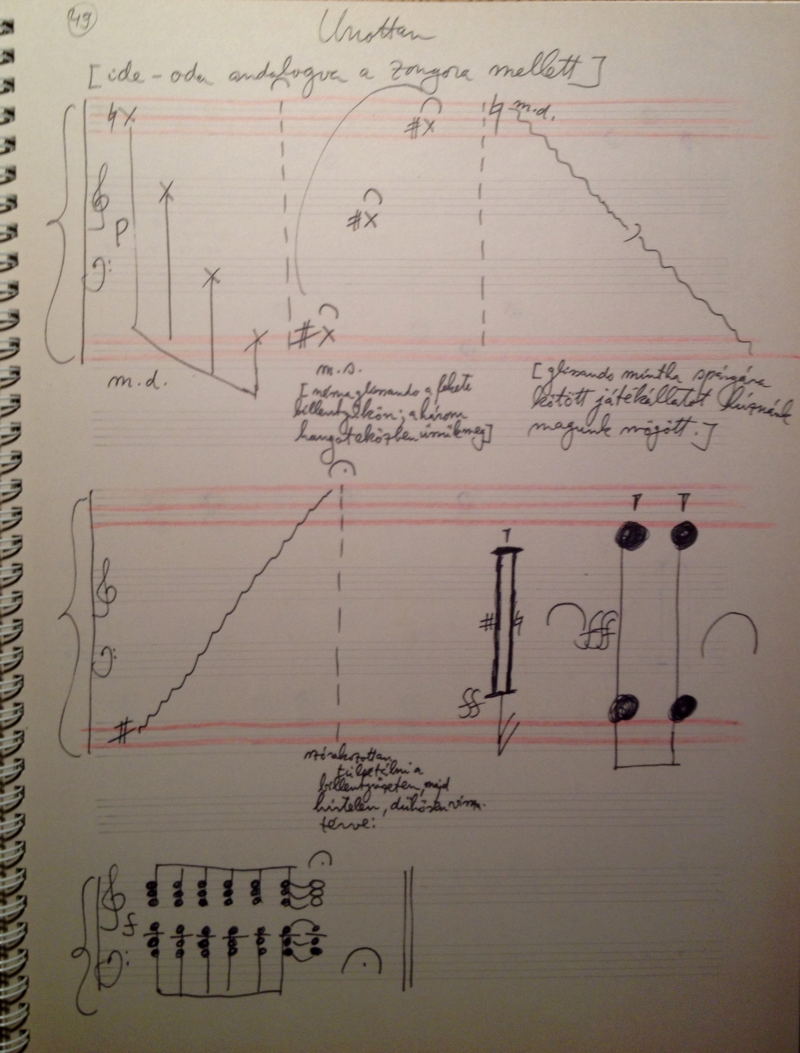 49
Unottan
[ide-oda andalogva a zongora mellett]
m.d.
p
m.d.
m.s.
[néma glissando a fekete
billentyűkön; a három
hangot eközben üssük meg]
[glissando mintha spárgára
kötött játékállatot húznánk
magunk mögött.]
szórakozottan
túlsétálni a
billentyűzeten, majd
hirtelen, dühösen vissza-
térve:
ff
fff
f